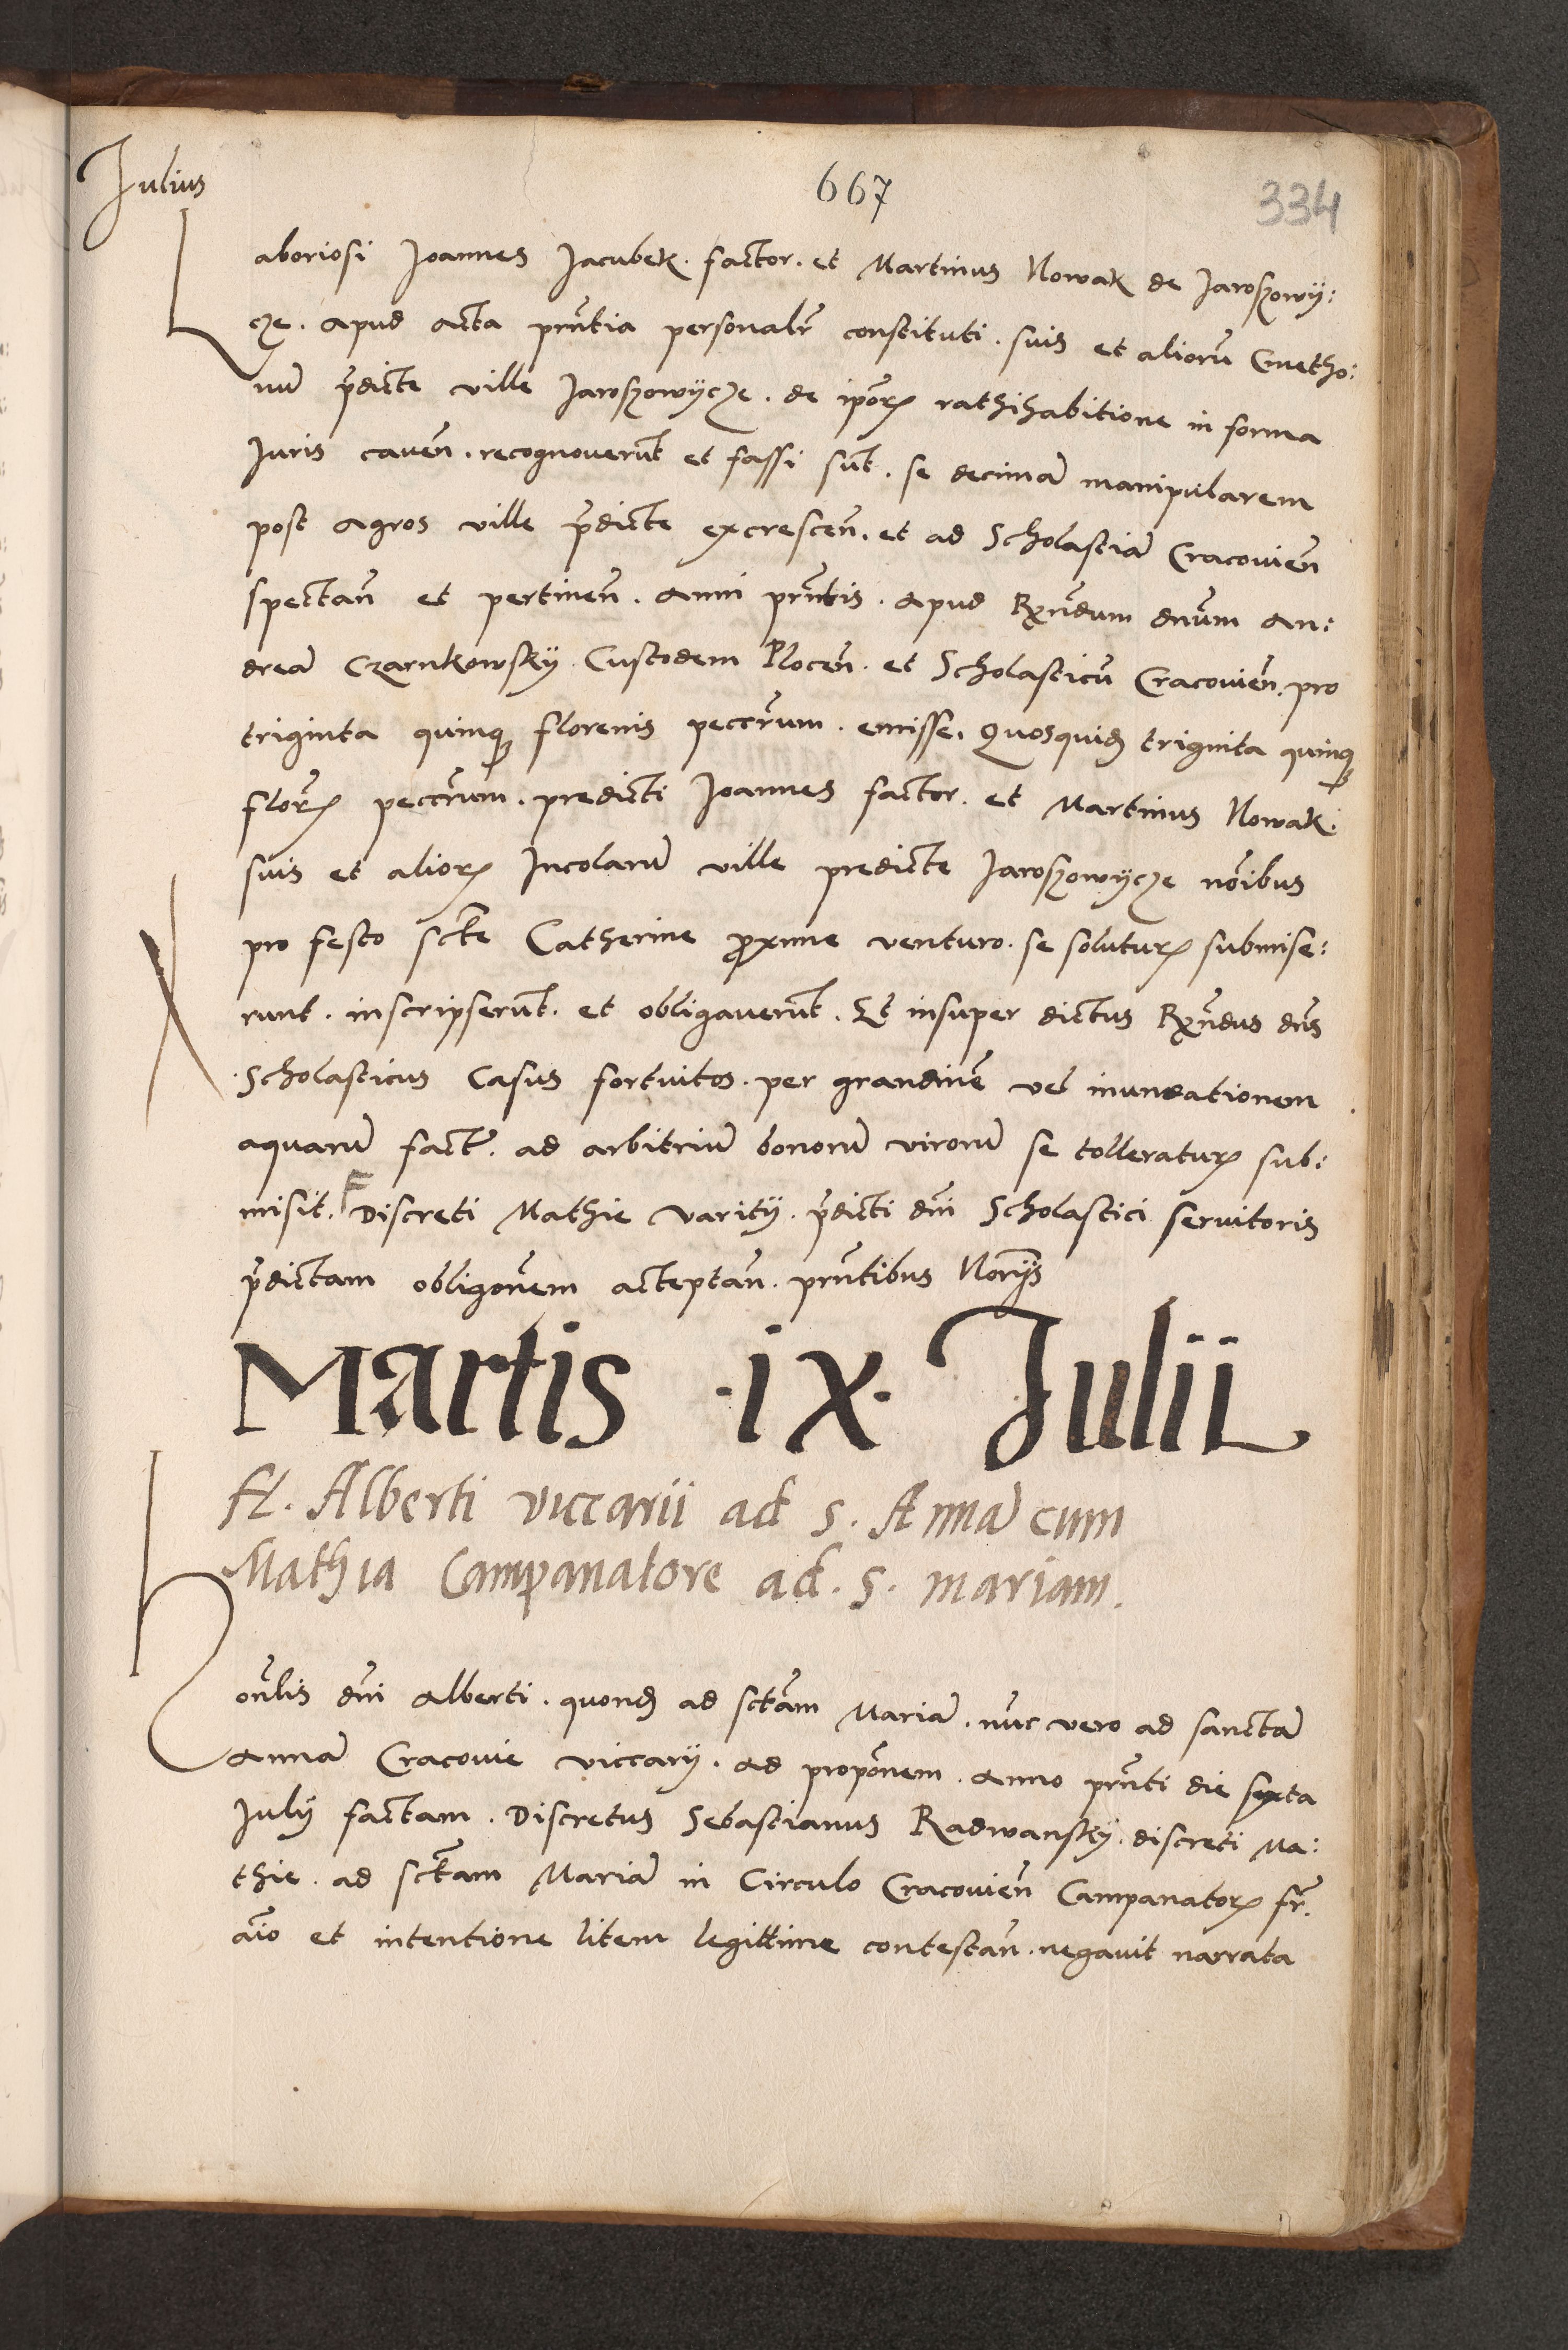 Julius
667
334
Laboriosi Joannes Jacubek. factor. et Martinus Nowak de Jaroszowÿ:
cze. apud acta pn̄tia personalr̄ constituti. suis et aliorū Cmetho:
nū p̄dicte ville Jaroszowÿcze. de ip̄orꝝ rathihabitione in forma
Juris caven̄. recognoverūt et fassi sūt. se decimā manipularem
post agros ville p̄dicte excrescen̄. et ad Scholastiā Cracovien̄
spectan̄ et pertinen̄. anni pn̄tis. apud Rn̄dum dn̄um An:
dreā Czarnkowskÿ Custodem Plocen̄. et Scholasticū Cracovien̄. pro
triginta quinqꝫ florenis peccr̄um. emisse. Quosquid triginta quinqꝫ
flor̄ꝝ peccr̄um. predicti Joannes factor. et Martinus Nowak.
suis et aliorꝝ Incolarū ville predicte Jaroszowÿcze nōibus
pro festo sctē Catherine ꝓxime venturo. se soluturꝝ submise:
runt. inscripserūt. et obligaverūt. Et insuper dictus Rn̄dus dn̄s
Scholasticus Casus fortuitos. per grandinē vel inundationem
aquarū fact̄. ad arbitriū bonorū virorū se tolleraturꝝ sub:
misit. Discreti Mathie Varitÿ. p̄dicti dn̄i Scholastici servitoris
p̄dictam obligon̄em acceptan̄. pn̄tibus Norÿs
Martis .ix. Julii
H. Alberti viccarii ad s. Annā cum
Mathia Campanatore ad. s. mariam.
Hon̄lis dn̄i Alberti. quond ad sctām Mariā. nūc vero ad sanctā
Annā Cracovie viccarÿ. ad propōnem. anno pn̄ti die sexta
Julÿ factam. Discretus Sebastianus Radwanskÿ. discreti Ma:
thie. ad sctām Mariā in Circulo Cracovien̄ Campanatorꝝ fr̄.
aīo et intentione litem legittime contestan̄. negavit narrata